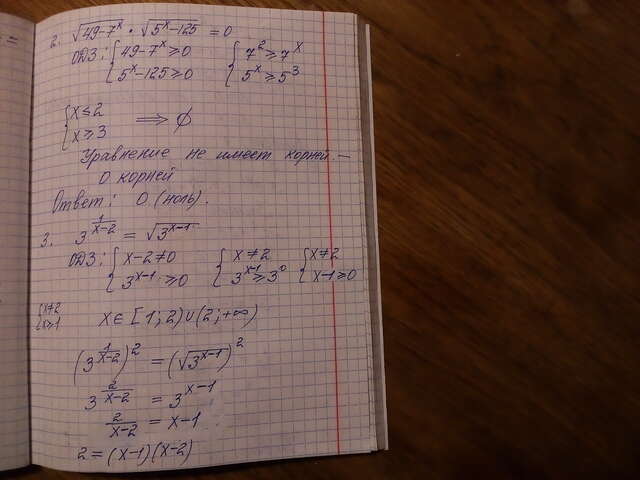 =
2. √(49-7^x) · √(5^x-125) = 0
ОДЗ: { 49-7^x ≥ 0 { 7^2 ≥ 7^x
{ 5^x-125 ≥ 0 { 5^x ≥ 5^3
{ x ≤ 2
{ x ≥ 3 ⟹ ∅
Уравнение не имеет корней —
0 корней
Ответ: 0 (ноль).
3. 3^(1/(x-2)) = √(3^(x-1))
ОДЗ: { x-2 ≠ 0 { x ≠ 2 { x ≠ 2
{ 3^(x-1) ≥ 0 { 3^(x-1) ≥ 3^0 { x-1 ≥ 0
{ x ≠ 2
{ x ≥ 1 x ∈ [1; 2) ∪ (2; +∞)
(3^(1/(x-2)))^2 = (√(3^(x-1)))^2
3^(2/(x-2)) = 3^(x-1)
2/(x-2) = x-1
2 = (x-1)(x-2)